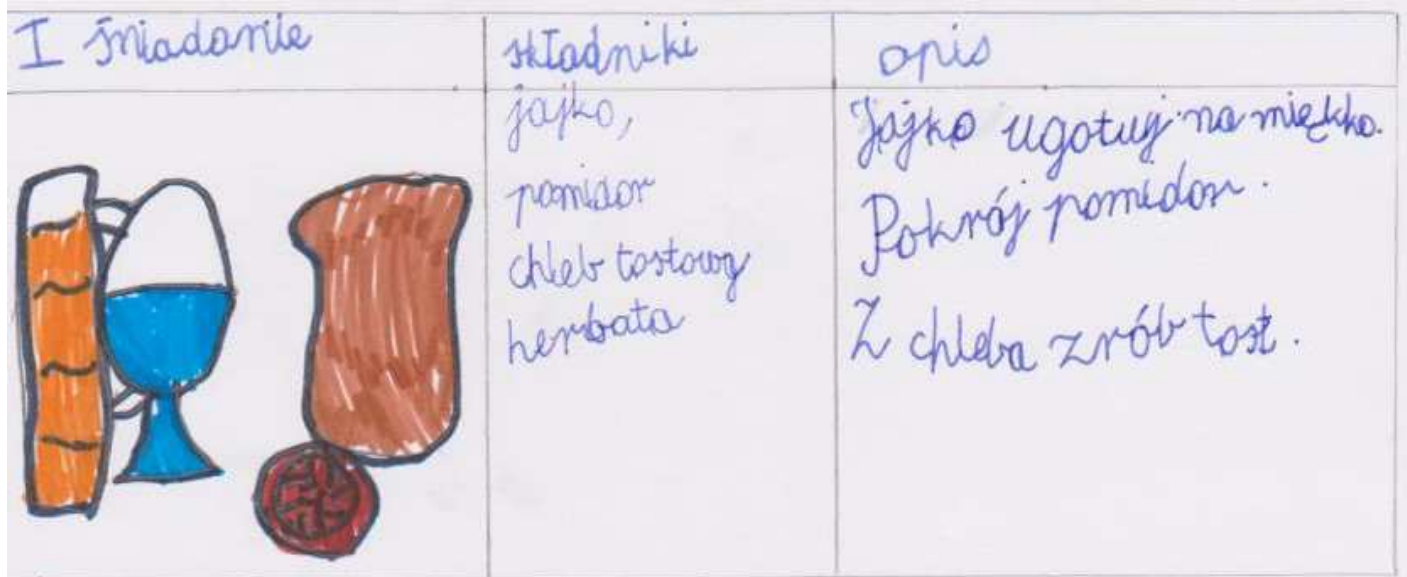 I śniadanie
składniki
opis
jajko,
pomidor
chleb tostowy
herbata
Jajko ugotuj na miękko.
Pokrój pomidor.
Z chleba zrób tost.